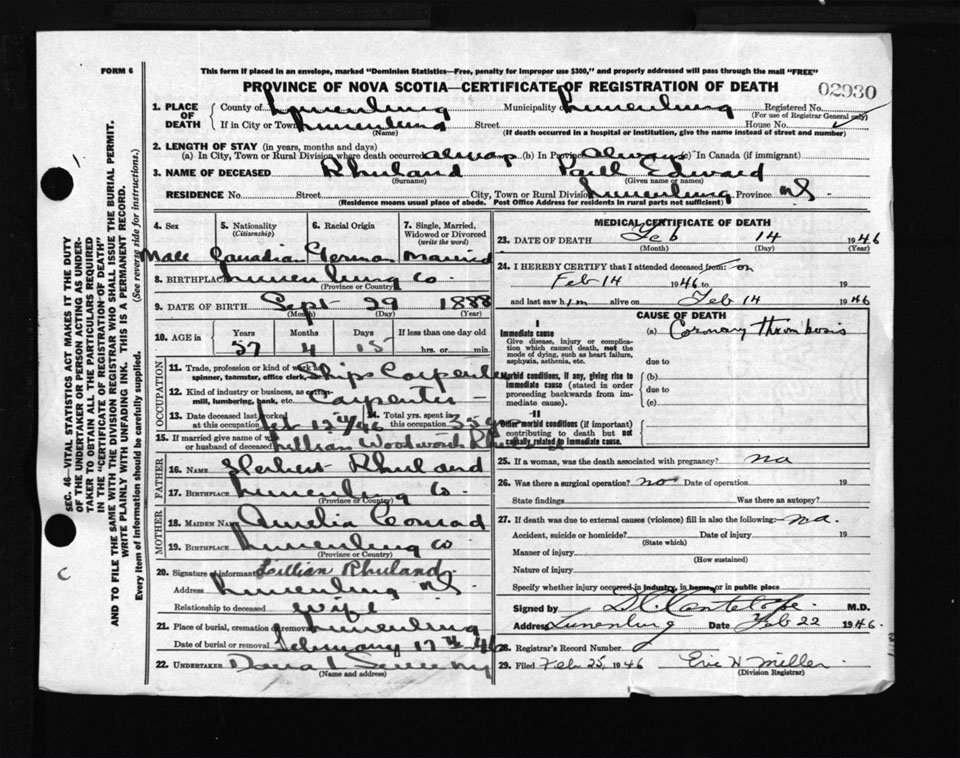 FORM 6
This form if placed in an envelope, marked "Dominion Statistics—Free, penalty for improper use $300," and properly addressed will pass through the mail "FREE"
PROVINCE OF NOVA SCOTIA—CERTIFICATE OF REGISTRATION OF DEATH
02930
SEC. 46—VITAL STATISTICS ACT MAKES IT THE DUTY
OF THE UNDERTAKER OR PERSON ACTING AS UNDER-
TAKER TO OBTAIN ALL THE PARTICULARS REQUIRED
IN THE "CERTIFICATE OF REGISTRATION OF DEATH"
AND TO FILE THE SAME WITH THE DIVISION REGISTRAR WHO SHALL ISSUE THE BURIAL PERMIT.
WRITE PLAINLY WITH UNFADING INK. THIS IS A PERMANENT RECORD.
Every item of information should be carefully supplied. (See reverse side for instructions.)
1. PLACE OF DEATH County of Lunenburg Municipality Lunenburg Registered No.
(For use of Registrar General only)
If in City or Town Lunenburg Street House No.
(Name) (If death occurred in a hospital or institution, give the name instead of street and number)
2. LENGTH OF STAY (in years, months and days)
(a) In City, Town or Rural Division where death occurred always (b) In Province always (c) In Canada (if immigrant)
3. NAME OF DECEASED Rhuland Paul Edward
(Surname) (Given name or names)
RESIDENCE No. Street City, Town or Rural Division Lunenburg Province NS
(Residence means usual place of abode. Post Office Address for residents in rural parts not sufficient)
4. Sex 5. Nationality (Citizenship) 6. Racial Origin 7. Single, Married, Widowed or Divorced (write the word)
Male Canadian German Married
8. BIRTHPLACE Lunenburg Co.
(Province or Country)
9. DATE OF BIRTH Sept 29 1888
(Month) (Day) (Year)
10. AGE in Years Months Days If less than one day old
57 4 15 hrs. or min.
OCCUPATION
11. Trade, profession or kind of work as spinner, teamster, office clerk, Ships Carpenter
12. Kind of industry or business, as cotton-mill, lumbering, bank, etc. Carpenter
13. Date deceased last worked at this occupation Feb 12th/46 14. Total yrs. spent in this occupation 35 yrs
15. If married give name of wife or husband of deceased Lillian Woodworth Rhuland
FATHER
16. NAME Herbert Rhuland
17. BIRTHPLACE Lunenburg Co
(Province or Country)
MOTHER
18. MAIDEN NAME Amelia Conrad
19. BIRTHPLACE Lunenburg Co
(Province or Country)
20. Signature of informant Lillian Rhuland
Address Lunenburg NS
Relationship to deceased wife
21. Place of burial, cremation or removal Lunenburg
Date of burial or removal February 17th 46
22. UNDERTAKER
(Name and address)
MEDICAL CERTIFICATE OF DEATH
23. DATE OF DEATH Feb 14 1946
(Month) (Day) (Year)
24. I HEREBY CERTIFY that I attended deceased from: on
Feb 14 1946 to 19
and last saw him alive on Feb 14 1946
CAUSE OF DEATH
I
Immediate cause (a) Coronary thrombosis
Give disease, injury or complication which caused death, not the mode of dying, such as heart failure, asphyxia, asthenia, etc.
due to
Morbid conditions, if any, giving rise to immediate cause (stated in order proceeding backwards from immediate cause).
(b)
due to
(c)
II
Other morbid conditions (if important) contributing to death but not causally related to immediate cause
25. If a woman, was the death associated with pregnancy? na
26. Was there a surgical operation? no Date of operation 19
State findings Was there an autopsy?
27. If death was due to external causes (violence) fill in also the following: na
Accident, suicide or homicide? Date of injury 19
(State which)
Manner of injury
(How sustained)
Nature of injury
Specify whether injury occurred in industry, in home, or in public place
Signed by M.D.
Address Lunenburg Date Feb 22 1946
28. Registrar's Record Number
29. Filed Feb 25, 1946 Eric H Miller
(Division Registrar)